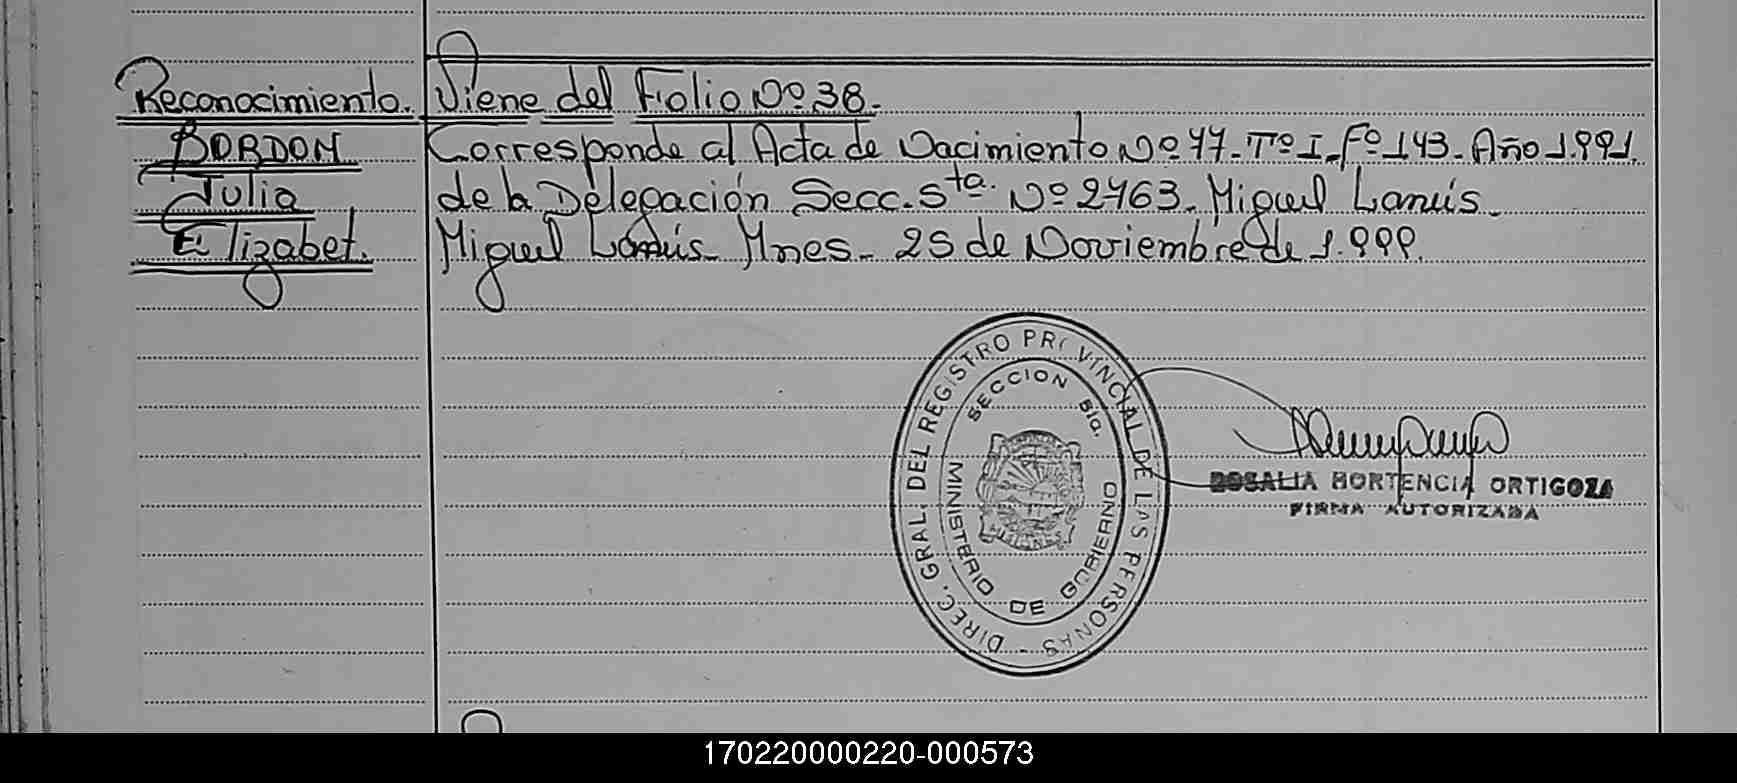 Reconocimiento. Viene del Folio Nº 38.
BORDON Corresponde al Acta de Nacimiento Nº 77- Tº I- Fº 143- Año 1.991.
Julia de la Delegación Secc. 5ta. Nº 2763- Miguel Lanús-
Elizabet. Miguel Lanús- Mnes- 25 de Noviembre de 1.999.
DIREC. GRAL. DEL REGISTRO PROVINCIAL DE LAS PERSONAS -
SECCION 5ta.
MINISTERIO DE GOBIERNO
MISIONES
ROSALIA HORTENCIA ORTIGOZA
FIRMA AUTORIZADA
170220000220-000573